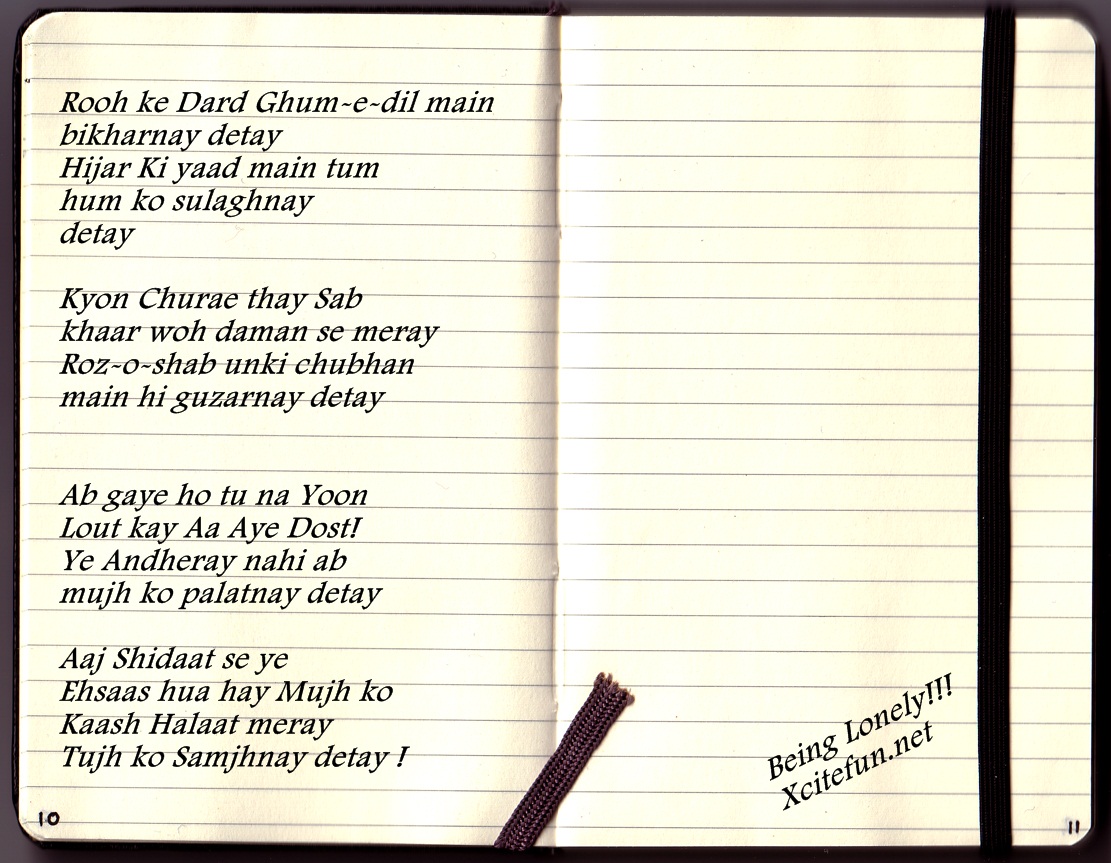 Rooh ke Dard Ghum~e~dil main
bikharnay detay
Hijar Ki yaad main tum
hum ko sulaghnay
detay
Kyon Churae thay Sab
khaar woh daman se meray
Roz~o~shab unki chubhan
main hi guzarnay detay
Ab gaye ho tu na Yoon
Lout kay Aa Aye Dost!
Ye Andheray nahi ab
mujh ko palatnay detay
Aaj Shidaat se ye
Ehsaas hua hay Mujh ko
Kaash Halaat meray
Tujh ko Samjhnay detay !
10
Being Lonely!!!
Xcitefun.net
11